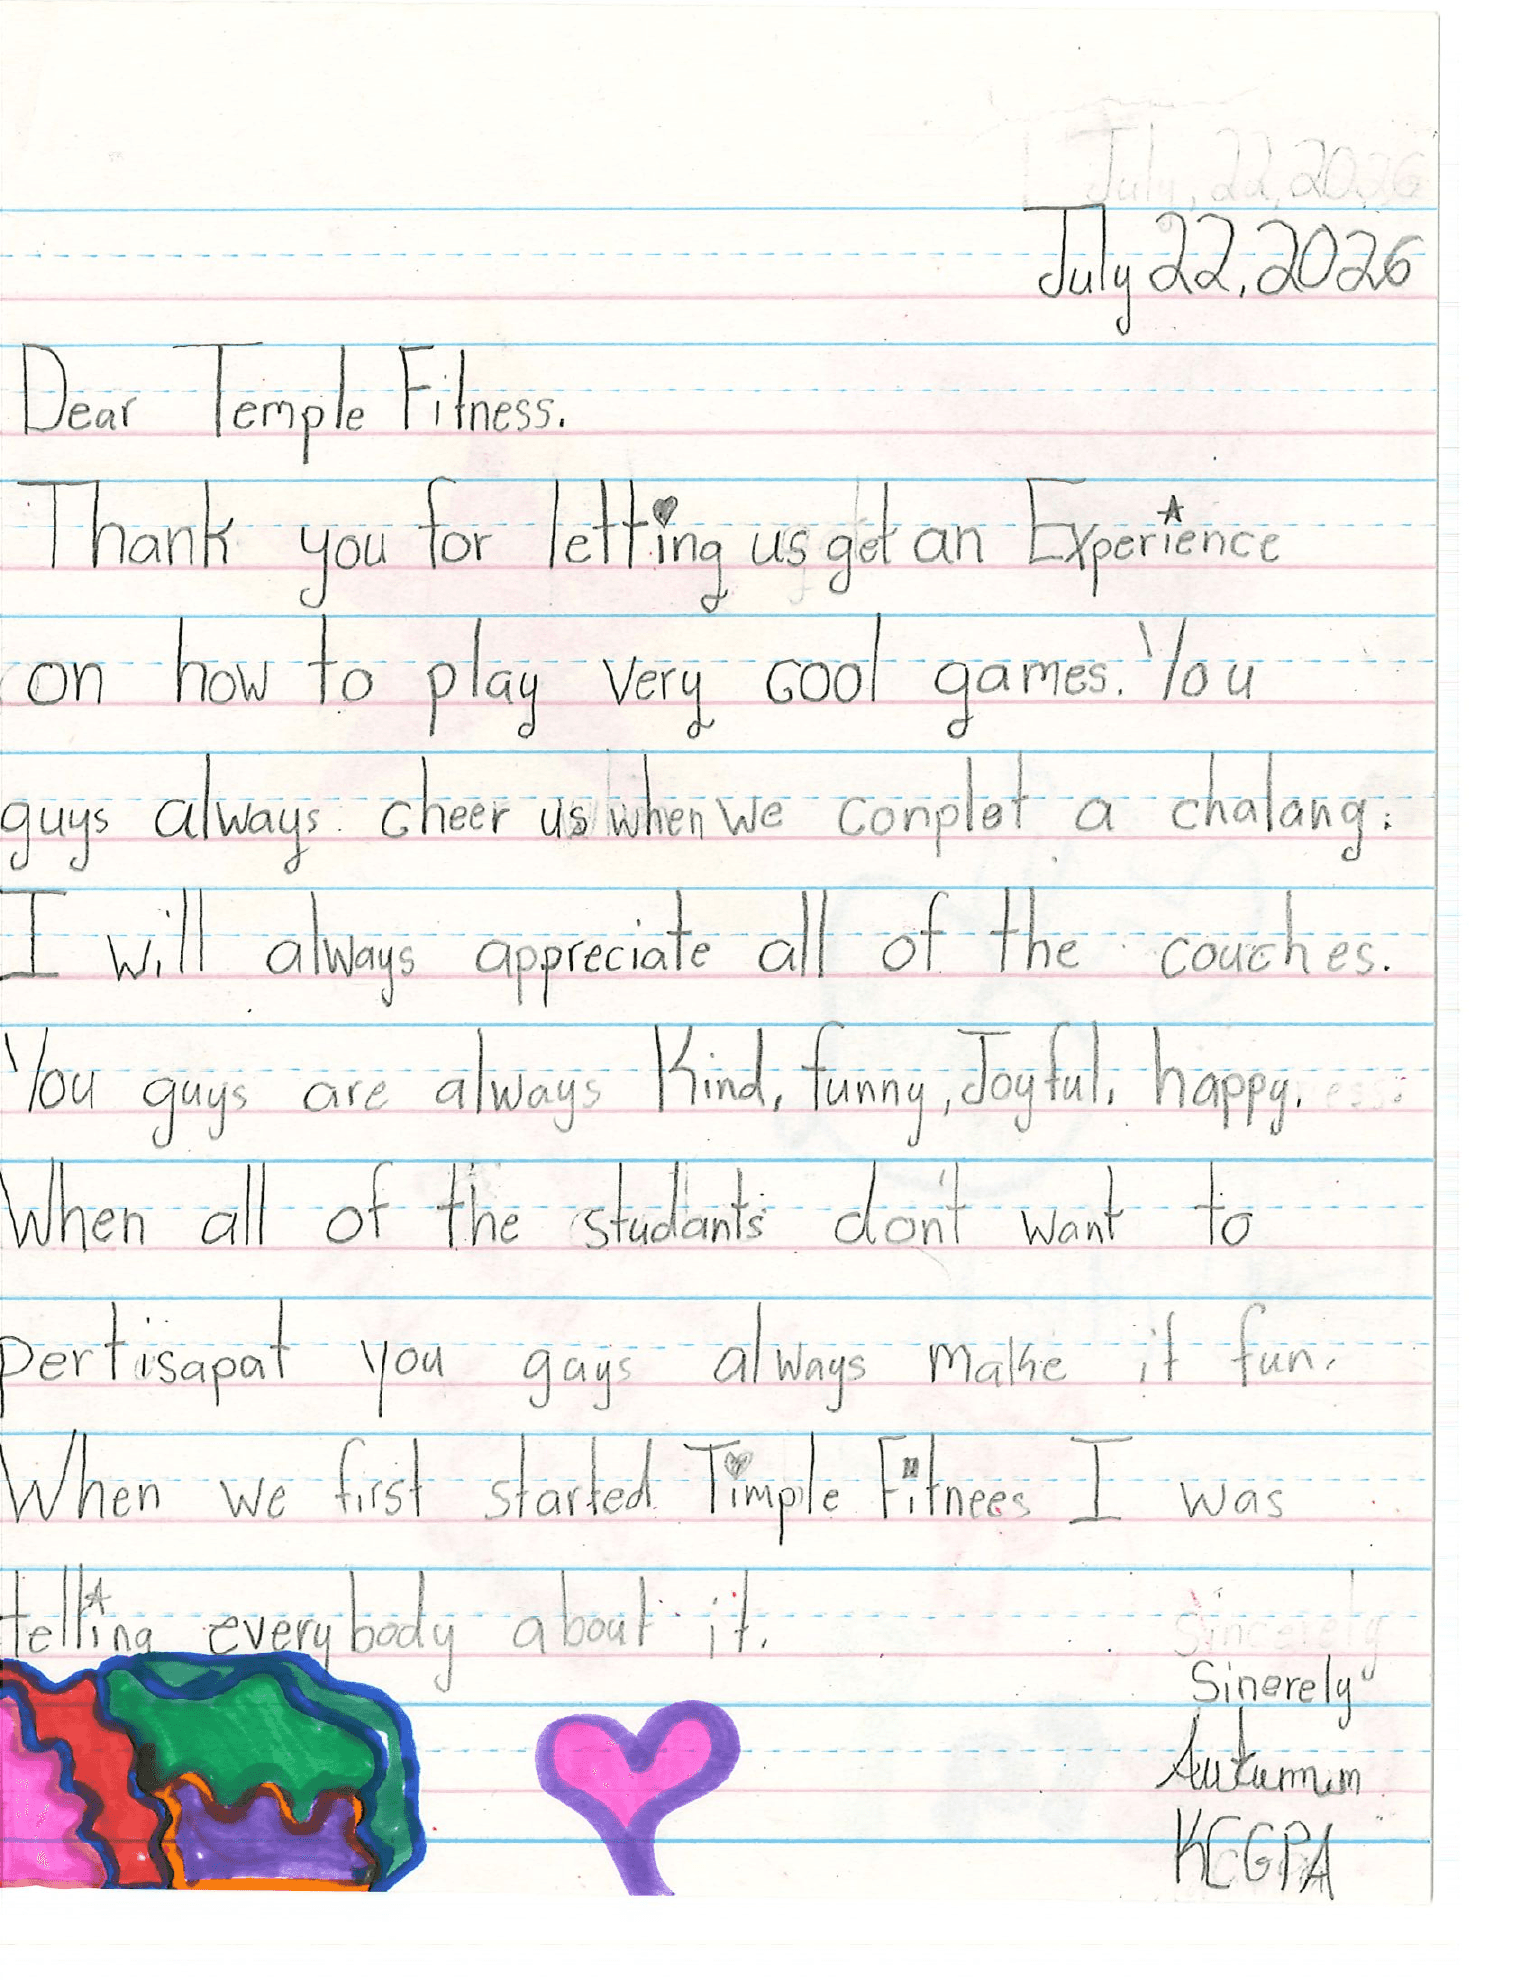 July 22, 2026
Dear Temple Fitness.
Thank you for letting us get an Experience
on how to play very cool games. You
guys always cheer us when we conplet a chalang.
I will always appreciate all of the couches.
You guys are always kind, funny, Joyful, happy.
When all of the studants don't want to
pertisapat you guys always make it fun.
When we first started Timple Fitnees I was
telling everybody about it.
Sinerely
Autumn
KCGPA